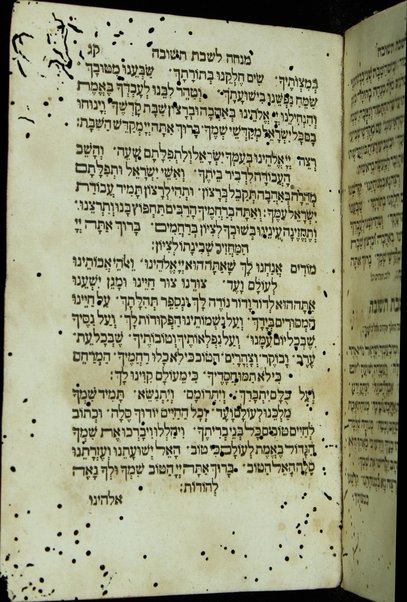 מנחה לשבת תשובה קג
במצותיך שים חלקנו בתורתך שבענו מטובך
שמח נפשנו בישועתך וטהר לבנו לעבדך באמת
והנחילנו יי אלהינו באהבה וברצון שבת קדשך וינוחו
בם כל ישראל מקדשי שמך ברוך אתה יי מקדש השבת:
רצה יי אלהינו בעמך ישראל ולתפלתם שעה והשב
העבודה לדביר ביתך ואשי ישראל ותפלתם
מהרה באהבה תקבל ברצון ותהי לרצון תמיד עבודת
ישראל עמך ואתה ברחמיך הרבים תחפוץ בנו ותרצנו
ותחזינה עינינו בשובך לציון ברחמים ברוך אתה יי
המחזיר שכינתו לציון:
מודים אנחנו לך שאתה הוא יי אלהינו ואלהי אבותינו
לעולם ועד צורנו צור חיינו ומגן ישענו
אתה הוא לדור ודור נודה לך ונספר תהלתך על חיינו
המסורים בידך ועל נשמותינו הפקודות לך ועל נסיך
שבכל יום עמנו ועל נפלאותיך וטובותיך שבכל עת
ערב ובוקר וצהרים הטוב כי לא כלו רחמיך המרחם
כי לא תמו חסדיך כי מעולם קוינו לך:
ועל כלם יתברך ויתרומם ויתנשא תמיד שמך
מלכנו לעולם ועד וכל החיים יודוך סלה וכתוב
לחיים טובים כל בני בריתך ויהללו ויברכו את שמך
הגדול באמת לעולם כי טוב האל ישועתנו ועזרתנו
סלה האל הטוב ברוך אתה יי הטוב שמך ולך נאה
להודות:
אלהינו